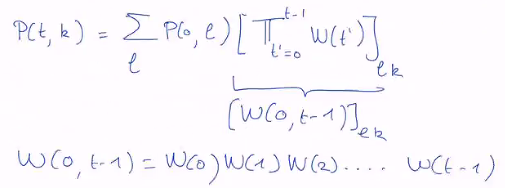 P(t,k) = ∑_ℓ P(0,ℓ) [ ∏_{t'=0}^{t-1} W(t') ]_{ℓk}
[W(0,t-1)]_{ℓk}
W(0,t-1) = W(0) W(1) W(2) .... W(t-1)